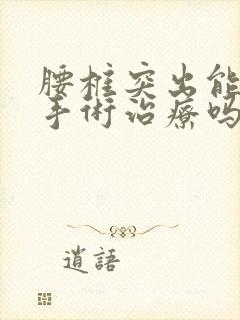 腰椎突出能
手術治療吗
逍語